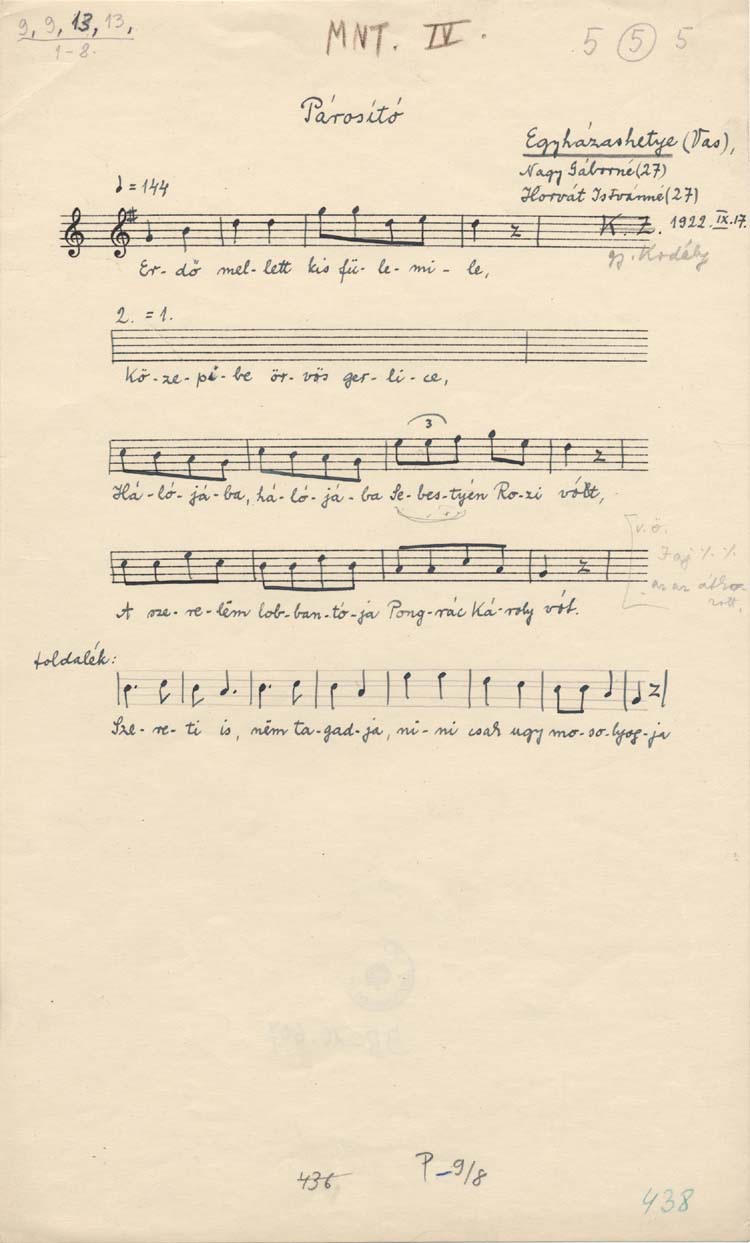 9, 9, 13, 13,
1-8.
MNT. IV.
5 5 5
Párosító
Egyházashetye (Vas),
Nagy Gáborné (27)
Horvát Istvánné (27)
K. Z. 1922. IX. 17.
gy. Kodály
♩ = 144
Er- dő mel- lett kis fü- le- mi- le,
2. = 1.
Kö- ze- pi- be ör- vös ger- li- ce,
3
Há- ló- já- ba, há- ló- já- ba Se- bes- tyén Ro- zi vólt,
v. ö.
Faj %. %.
az az átko-
zott,
A sze- re- lëm lob- ban- tó- ja Pong- rác Ká- roly vót.
toldalék:
Sze- re- ti is, nëm ta- gad- ja, ni- ni csak ugy mo- so- lyog- ja
436
P-9/8
438